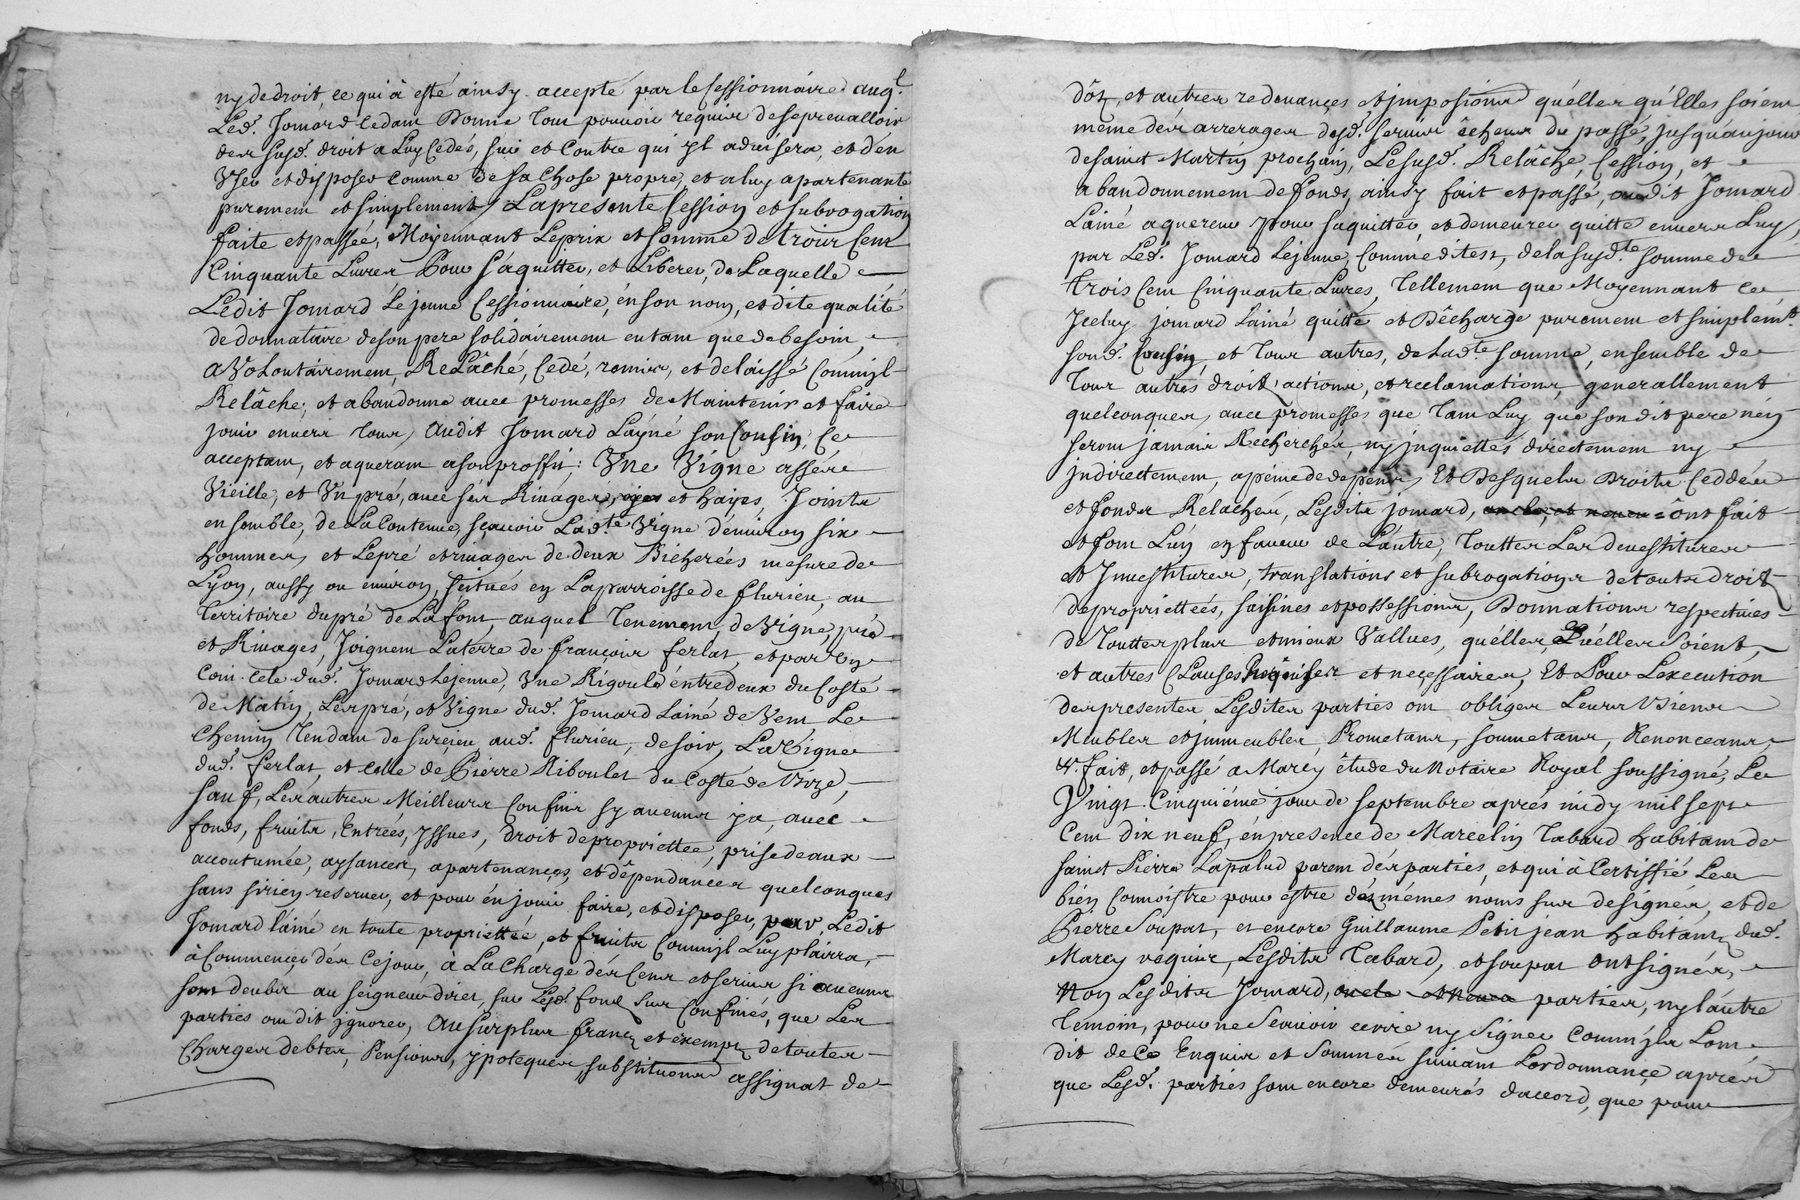 ny de droit, ce qui à esté ainsy accepté par le Cessionnaire auql.
Led. Jomard cedant Donne tout pouvoir requis de se prevalloir
des susd. droit a Luy Cedés, sur et Contre qui yl advisera, et d'en
User et disposer comme de sa Chose propre, et a luy apartenante
purement et simplement, La presente Cession et subrogation
faite et passée, Moÿennant Le prix et somme de trois Cent
Cinquante Livres Pour S'aquitter, et Liberer, de Laquelle
Ledit Jomard Le jeune Cessionnaire, én son nom, et dite qualité
de donnataire de son pere solidairement en tant que de besoin,
a Volontairement, Relâché, Cedé, remis, et delaissé Comm'yl
Relâche, et abandonne avec promesses de Maintenir et faire
jouir envers tous, audit Jomard L'ayné son Cousin, Ce
acceptant, et aquerant a son proffit: Une Vigne assés
Vieille, et Un pré, avec sés Rivages, et hayes, Joints
ensemble, de La Contenue, sçavoir Ladte. Vigne d'énviron six
hommes, et Le pré et rivages de deux Bicherées mesure de
Lyon, aussy ou environ, scitués en La parroisse de flurieu, au
Territoire du pré de La font, auquel Tenement, de Vigne, pré
et Rivages, Joignent La terre de françois ferlat, et par un
Coin celle dud. Jomard Lejeune, Une Rigoule éntredeux du Costé
de Matin, Les pré, et Vigne dud. Jomard Lainé de Vent Le
Chemin Tendant de surcieu aud. flurieu, de soir, La Vigne
dud. ferlat, et celle de Pierre Riboulet du Costé de bize,
sauf, Les autres Meilleurs Confins sy aucuns ja, avec
fonds, fruits, Entrées, yssues, droit de propriettée, prise deaux
accoutumée, aysances, apartenançes, et dépendances quelconques
sans si rien reserver, et pour én jouir faire, et disposer, par, Ledit
Jomard l'áiné en toute propriettée, et fruits Comm'yl Luy plairra,
à Commencer dés Ce jour, à La Charge dés Cens et servis si aucuns
sont deubs au seigneur direc, sur Lesd. fond sus Confinés, que Les
parties ont dit ignorer, Au surplus franq et éxempt de toutes
Charges debtes, Pensions, ypoteques, substitutions assignat de
dôt, et autres redevances et jmpositions quéller qu'Elles soient
même dés arrerages desd. servis êcheus du passé, jusqu'aujour
de sainct Martin prochain, Le susd. Relâche, Cession, et
abandonnement de fonds, ainsy fait et passé, audit Jomard
Lainé aquereur pour s'aquitter, et demeurer quitte envers Luy,
par Led. Jomard Lejeune, Comme dit est, de la susdte. somme de
trois Cent Cinquante Livres, Tellement que Moyennant Ce
Jceluy jomard Lainé quitte et Décharge purement et simplemt.
sond. Cousin, et tous autres, de Ladte somme, ensemble de
Tous autrés droit, actions, et reclamations generallement
quelconques, avec promesses que tant Luy que son dit pere n'en
seront jamais Recherchés, ny jnquiettés directement ny
jndirectement, a péine de depens, Et Desquels Droits Ceddés
et fonds Relachés, Lesdits jomard, oncle, et neveu ônt fait
et font L'un en faveur de L'autre, Touttes Les devestitures
et Jnvestitures, translations et subrogations de touts droit
de propriettées, saisines et possessions, Donnations respectives
de Touttes plus et mieux Vallues, quélles, Quélles soient,
et autres Clauses Requises et necessaires, Et Pour L'exécution
des presentes Lesdites parties ont obligés Leurs biens
Meubles et jmmeubles, Prometans, soumetans, Renonceans,
&. fait, et passé a Marcy êtude du Notaire Royal soussigné, Le
Vingt Cinquiéme jour de septembre aprés midy mil sept
Cent dix neuf, én presence de Marcelin Tabard habitant de
sainct Pierre Lapalud parent dés parties, et qui à Certiffié Les
bien Connoistre pour estre dés mémes noms sus designés, et de
Pierre Soupat, et encore Guillaume Petit jean habitants dud.
Marcy requis, Lesdits Tabard, et soupat ont signés,
Non Lesdits Jomard, oncle et neveu parties, ny l'autre
Temoin, pour ne Scavoir écrire ny Signer Comm'yls L'ont
dit de Ce Enquis et Sommés suivant L'ordonnançe aprés
que Lesd. parties sont encore demeurés d'accord, que pour